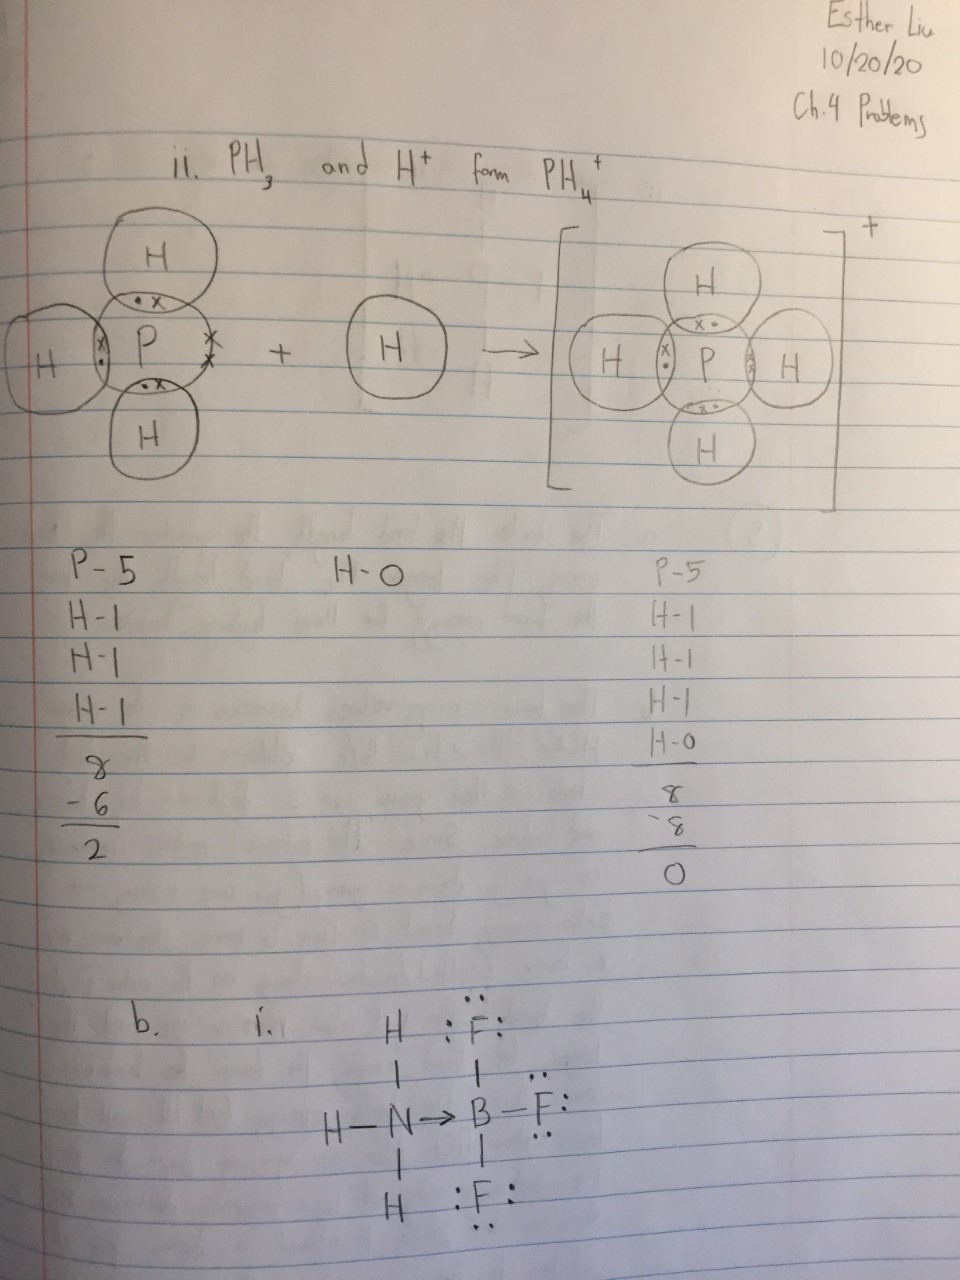 Esther Liu
10/20/20
Ch.4 Problems
ii. PH₃ and H⁺ form PH₄⁺
H H +
H P + H → H P H
H H
P-5 H-0 P-5
H-1 H-1
H-1 H-1
H-1 H-1
8 H-0
-6 8
2 -8
0
b. i. H :F:
H-N→B-F:
H :F: